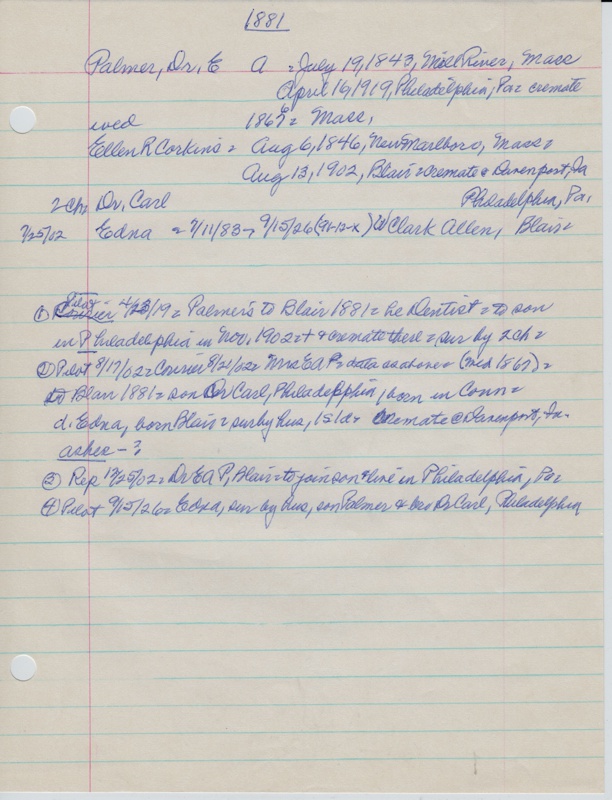 1881
Palmer, Dr. E A = July 19, 1843, Mill River, Mass
April 16, 1919, Philadelphia, Pa = cremate
wed 1867 = Mass,
Ellen R Corkins = Aug 6, 1846, New Marlboro, Mass =
Aug 13, 1902, Blair = cremate @ Davenport, Ia
2 ch = Dr. Carl Philadelphia, Pa,
7/25/02 Edna = 7/11/83 → 9/15/26 (96-12-x) Clark Allen, Blair =
① Pilot 4/23/19 = Palmer's to Blair 1881 = he Dentist = to son
in Philadelphia in Nov. 1902 = + & cremate there = sur by 2 ch =
② Pilot 8/17/02 = Courier 8/21/02 = Mrs EA P = data as above = (md 1867) =
to Blair 1881 = son Dr Carl, Philadelphia, born in Conn =
d. Edna, born Blair = sur by hus, 1s 1d = cremate @ Davenport, Ia.
ashes - ?
③ Rep 12/25/02 = Dr EA P, Blair = to join son & live in Philadelphia, Pa =
④ Pilot 9/15/26 = Edna, sur by hus, son Palmer & bro Dr Carl, Philadelphia